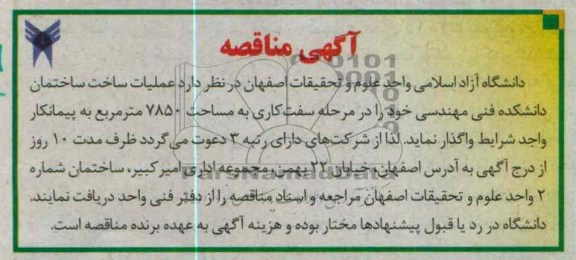 آگهی مناقصه
دانشگاه آزاد اسلامی واحد علوم و تحقیقات اصفهان در نظر دارد عملیات ساخت ساختمان
دانشکده فنی مهندسی خود را در مرحله سفت‌کاری به مساحت ۷۸۵۰ مترمربع به پیمانکار
واجد شرایط واگذار نماید. لذا از شرکت‌های دارای رتبه ۳ دعوت می‌گردد ظرف مدت ۱۰ روز
از درج آگهی به آدرس اصفهان خیابان ۲۲ بهمن مجموعه اداری امیرکبیر، ساختمان شماره
۲ واحد علوم و تحقیقات اصفهان مراجعه و اسناد مناقصه را از دفتر فنی واحد دریافت نمایند.
دانشگاه در رد یا قبول پیشنهادها مختار بوده و هزینه آگهی به عهده برنده مناقصه است.